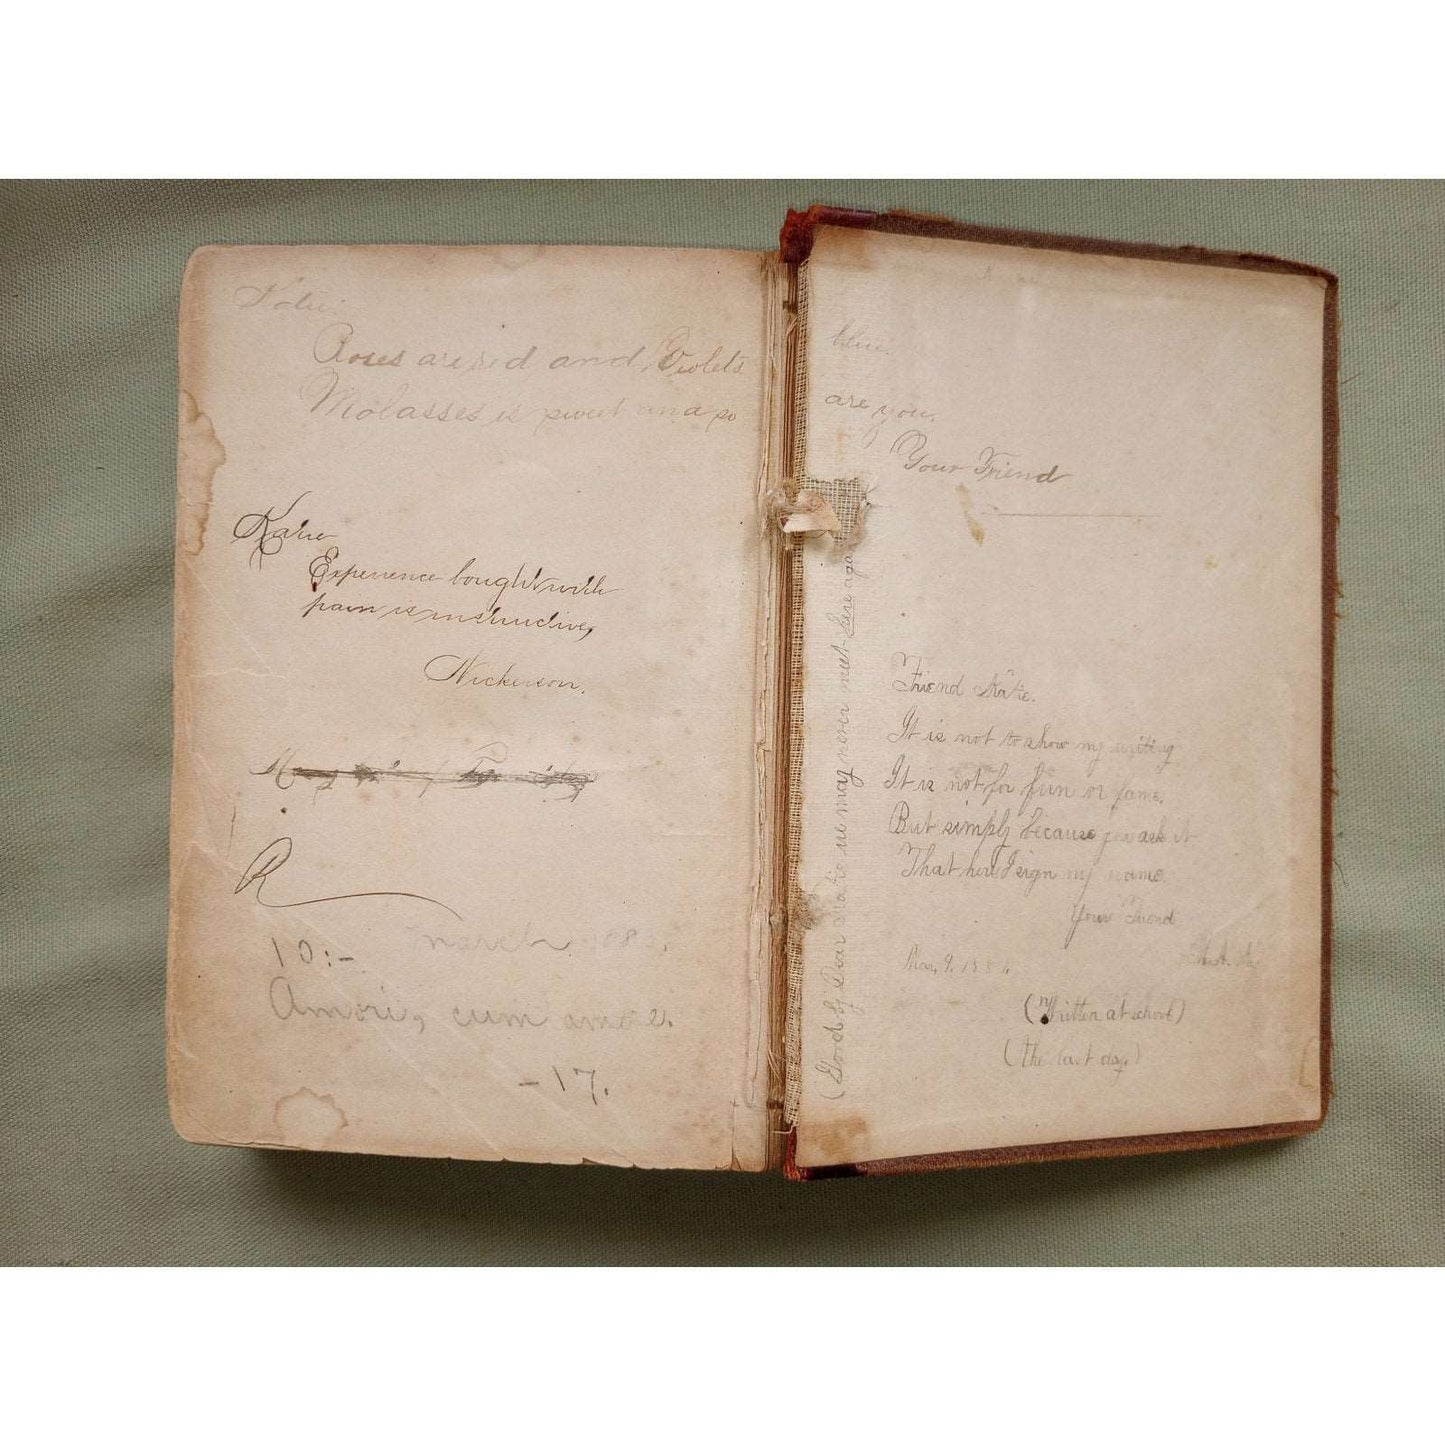 Katie.
Roses are red and Violets
Molasses is sweet and so
Katie
Experience bought with
pain is instructive,
Nickerson.
R
March 188
10:-
Amori, cum amore.
-17.
blue.
are you.
Your Friend
(Good by Dear Katie we may never meet here again
Friend Katie.
It is not to show my writing
It is not for fun or fame.
But simply because you ask it
That here I sign my name.
Your Friend
Mar, 9. 188
(Written at school)
(the last day)